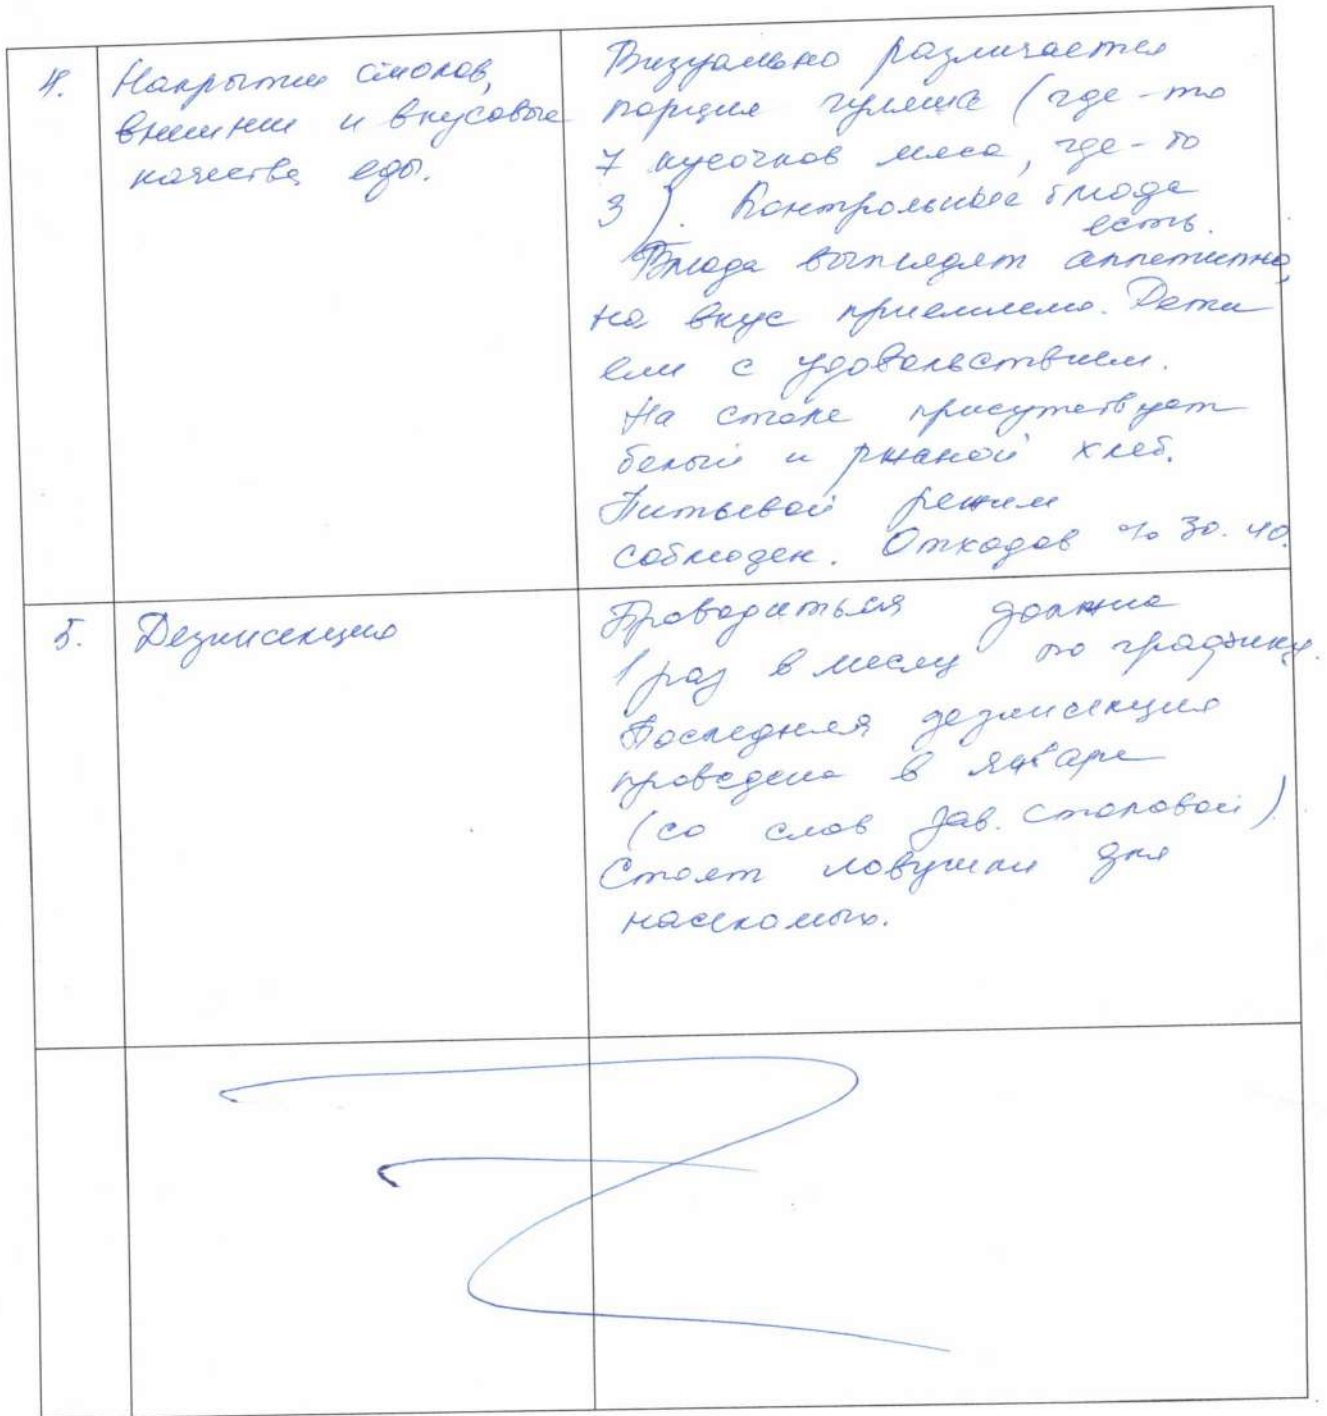 4.
Накрытие столов,
внешние и вкусовые
качества еды.
Визуально различается
порция гуляша (где-то
7 кусочков мяса, где-то
3). Контрольные блюда
есть.
Блюда выглядят аппетитно,
на вкус приемлемо. Дети
ели с удовольствием.
На столе присутствует
белый и ржаной хлеб.
Питьевой режим
соблюден. Отходов % 30-40.
5.
Дезинсекция
Проводиться должна
1 раз в месяц по графику.
Последняя дезинсекция
проведена в январе
(со слов зав. столовой).
Стоят ловушки для
насекомых.